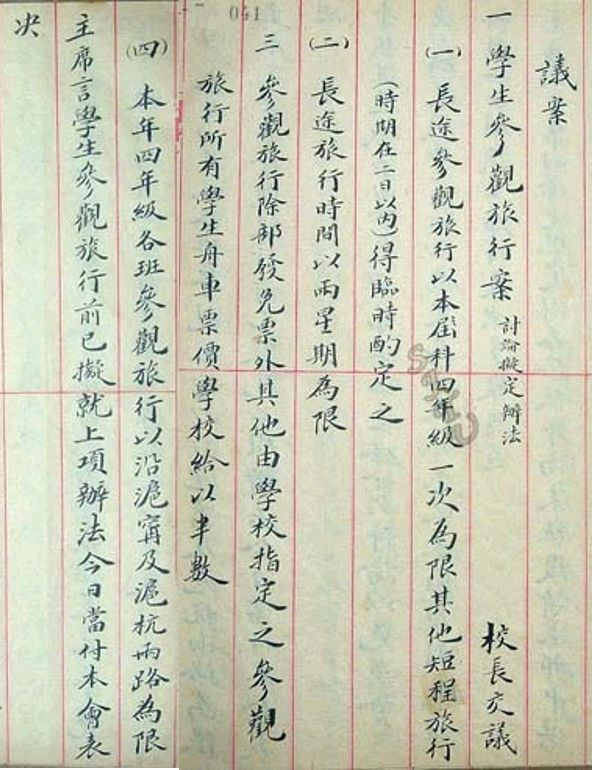 議案
一 學生參觀旅行案 討論擬定辦法 校長交議
(一) 長途參觀旅行以本屆本科四年級一次為限其他短程旅行
(時期在二日以內)得臨時酌定之
(二) 長途旅行時間以兩星期為限
三 參觀旅行除部發免票外其他由學校指定之參觀
旅行所有學生舟車票價學校給以半數
(四) 本年四年級各班參觀旅行以沿滬甯及滬杭兩路為限
主席言學生參觀旅行前已擬就上項辦法今日當付本會表
决
041